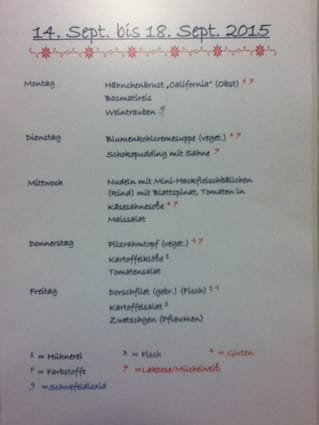 14. Sept. bis 18. Sept. 2015
Montag Hähnchenbrust „California“ (Obst) 4 7
Basmatireis
Weintrauben 9
Dienstag Blumenkohlcremesuppe (veget.) 4 7
Schokopudding mit Sahne 7
Mittwoch Nudeln mit Mini-Hackfleischbällchen
(Rind) mit Blattspinat, Tomaten in
Käsesahnesoße 4 7
Maissalat
Donnerstag Pilzrahmtopf (veget.) 4 7
Kartoffelklöße 1
Tomatensalat
Freitag Dorschfilet (gebr.) (Fisch)
Kartoffelsalat 1
Zwetschgen (Pflaumen)
1 = Hühnerei = Fisch = Gluten
= Farbstoffe 7 = Laktose/Milcheiweiß
9 = Schwefeldioxid